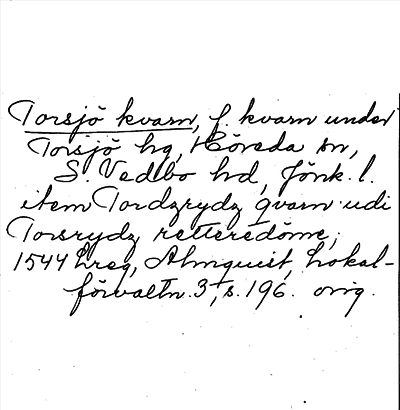 Torsjö kvarn, f. kvarn under
Torsjö hg, Höreda sn,
S. Vedbo hd, Jönk. l.
item Tordzrydz qvarn udi
Torsrydz retteredöme;
1544 hreg, Almquist, Lokal-
förvaltn. 3, s. 196. orig.